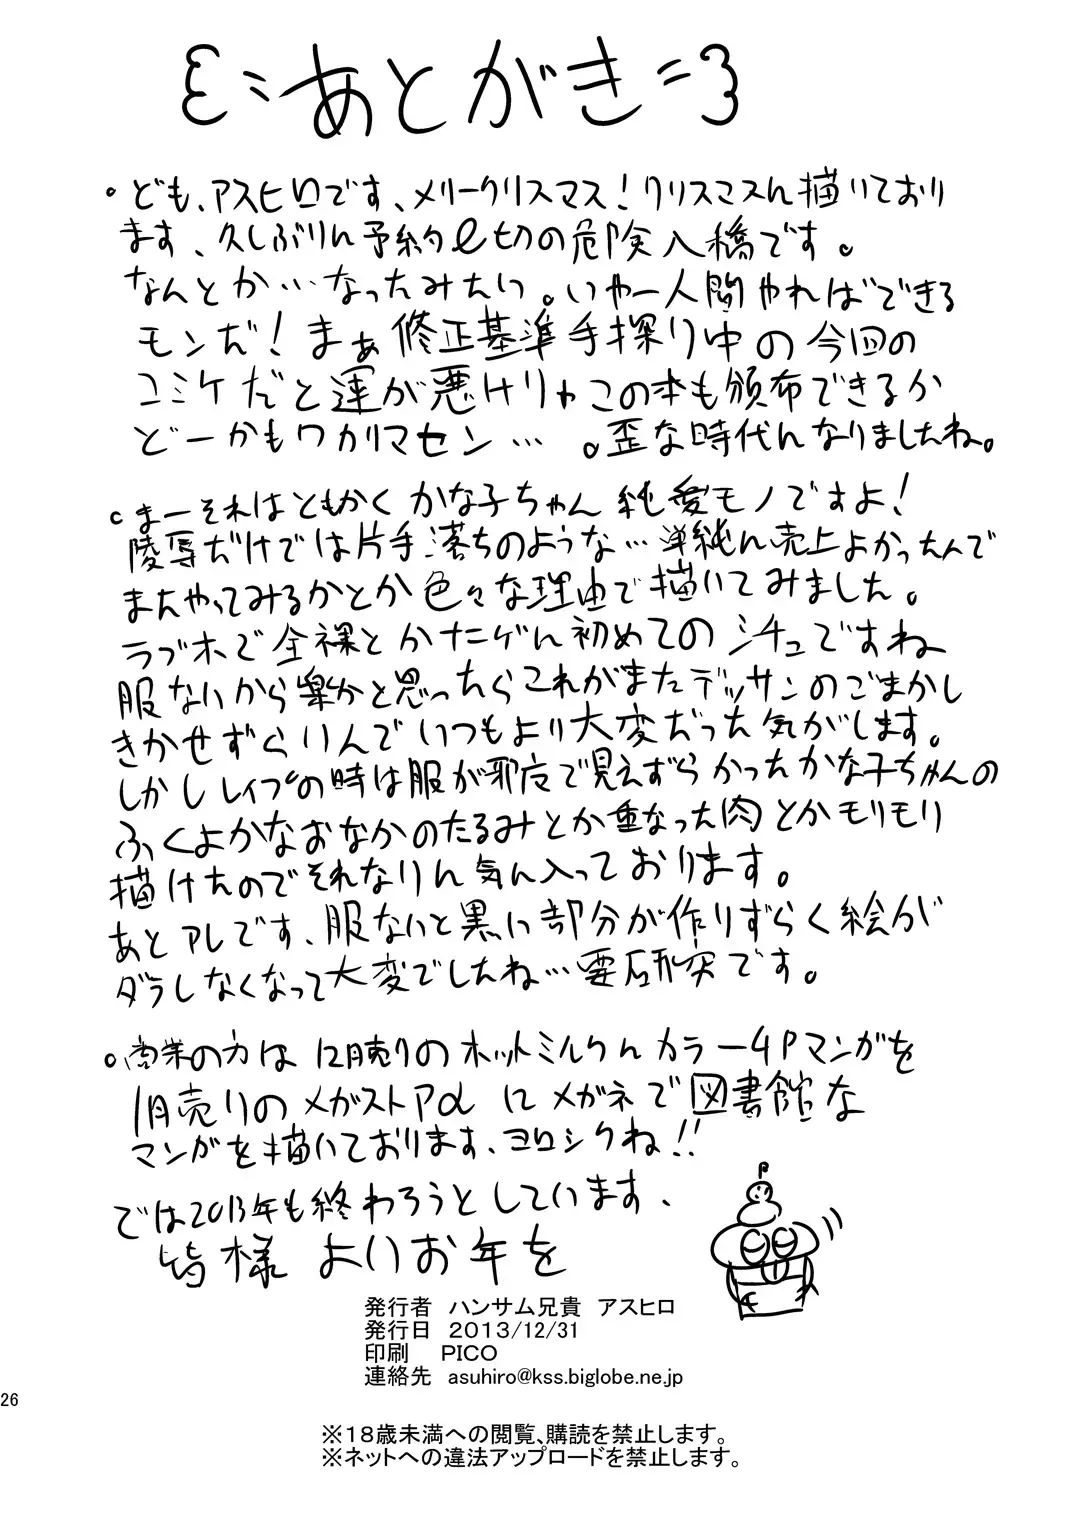 あとがき
。ども、アスヒロです、メリークリスマス！クリスマスに描いており
ます、久しぶりに予約〆切の危険入橋です。
なんとか…なったみたい。いやー人間やればできる
モンだ！まぁ修正基準手探り中の今回の
コミケだと運が悪けりゃこの本も頒布できるか
どーかもワカリマセン…。歪な時代になりましたね。
。まーそれはともかくかな子ちゃん純愛モノですよ！
陵辱だけでは片手落ちのような…単純に売上よかったんで
またやってみるかとか色々な理由で描いてみました。
ラブホで全裸とかナニゲに初めてのシチュですね
服ないから楽かと思ったらこれがまたデッサンのごまかし
きかせずらいんでいつもより大変だった気がします。
しかしレイプの時は服が邪魔で見えずらかったかな子ちゃんの
ふくよかなおなかのたるみとか重なった肉とかモリモリ
描けたのでそれなりに気に入っております。
あとアレです、服ないと黒い部分が作りずらく絵が
ダラしなくなって大変でしたね…要研究です。
。商業の方は12月売りのホットミルクにカラー4Pマンガを
1月売りのメガストアαにメガネで図書館な
マンガを描いております、ヨロシクね!!
では2013年も終わろうとしています、
皆様よいお年を
発行者　ハンサム兄貴　アスヒロ
発行日　2013/12/31
印刷　PICO
連絡先　asuhiro@kss.biglobe.ne.jp
26
※18歳未満への閲覧、購読を禁止します。
※ネットへの違法アップロードを禁止します。